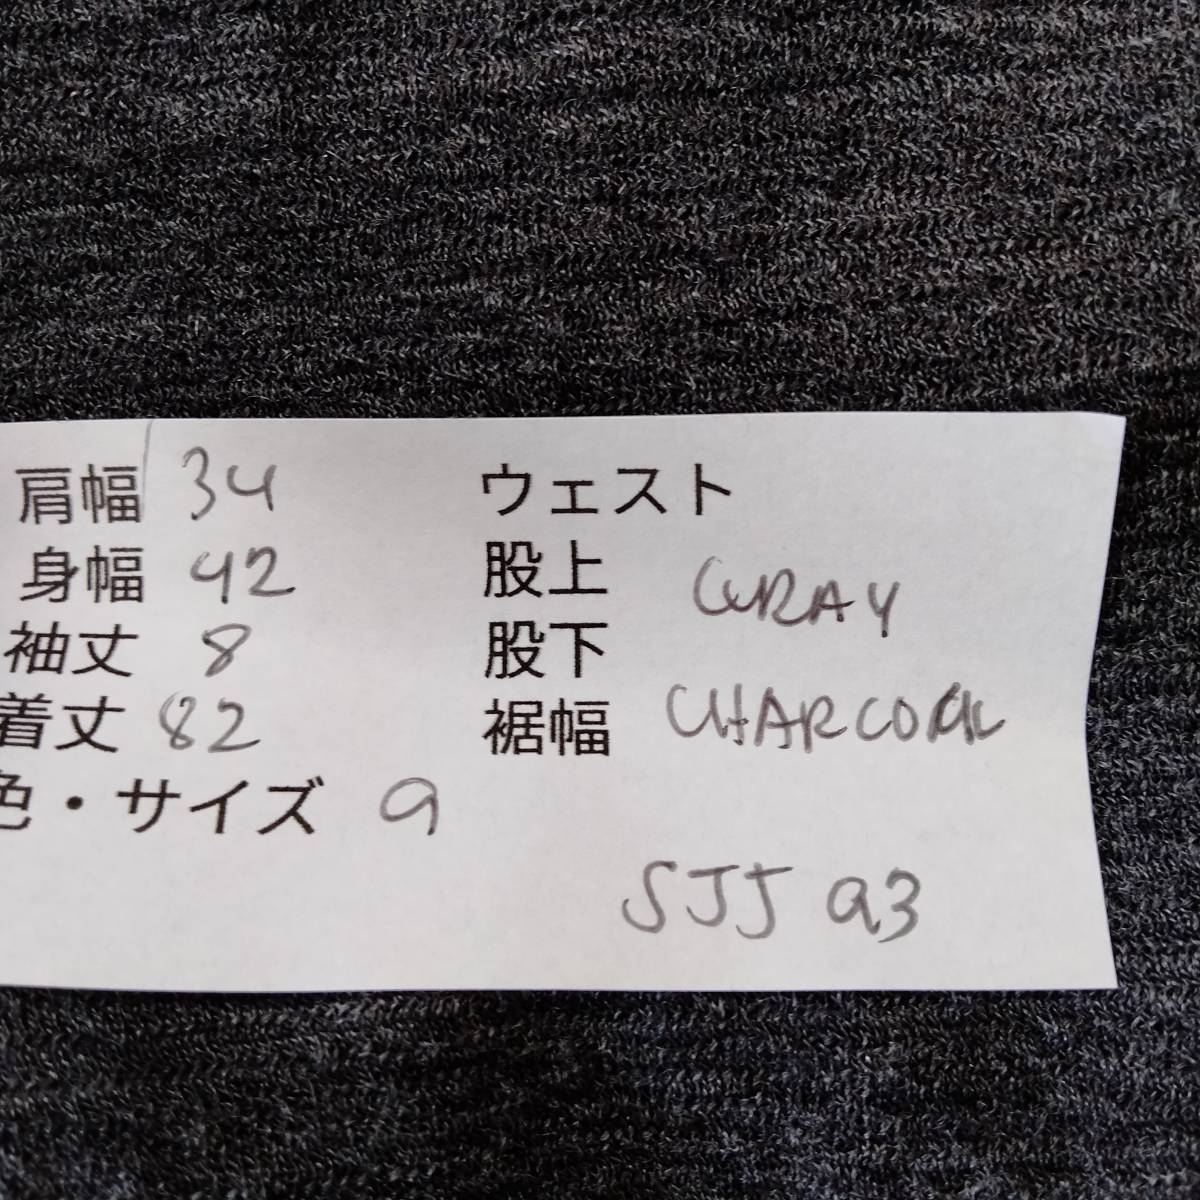 肩幅 34
身幅 42
袖丈 8
着丈 82
色・サイズ 9
ウェスト
股上
股下
裾幅
GRAY
CHARCOAL
SJJ 93